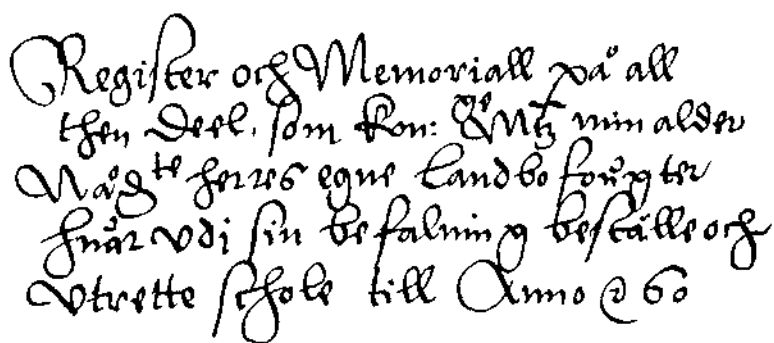 Register och Memoriall på all
then deel, som Kon: Ma:tz min alder
Nåd:te herres egne Landbo fougter
huar vdi sin befalning beställe och
vtrette schole till Anno @ 60